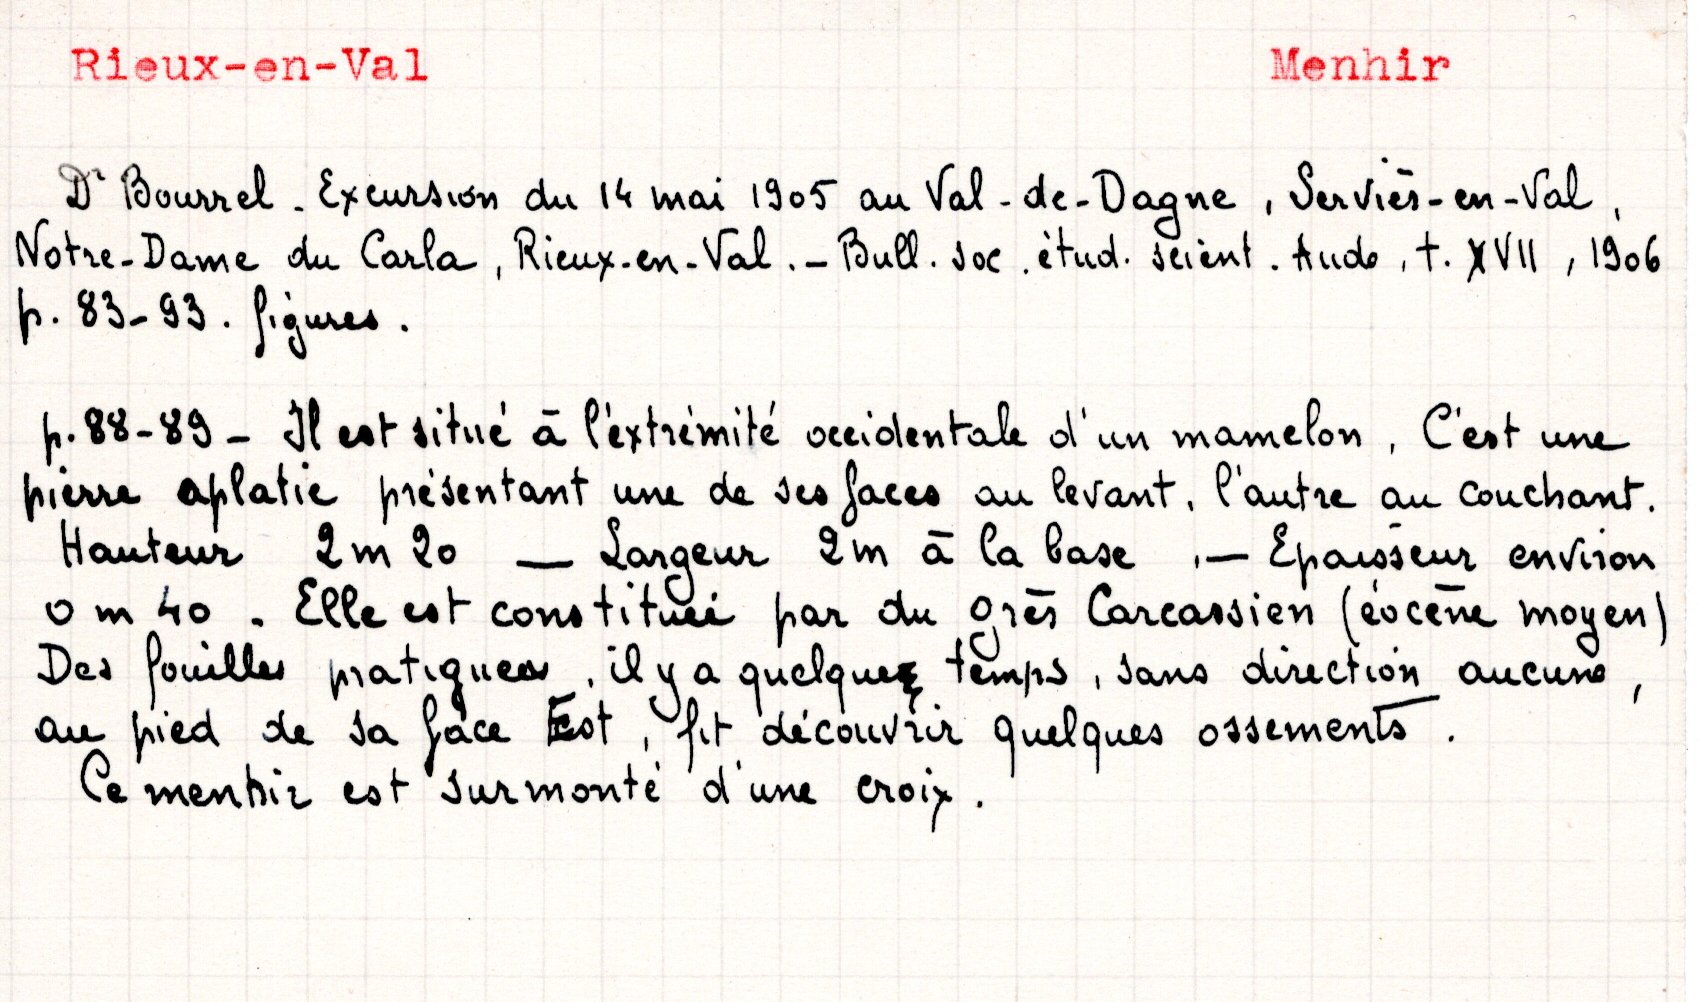 Rieux-en-Val Menhir
Dr Bourrel. Excursion du 14 mai 1905 au Val-de-Dagne, Serviès-en-Val,
Notre-Dame du Carla, Rieux-en-Val. - Bull. soc. étud. scient. Aude, t. XVII, 1906
p. 83-93. figures.
p. 88-89 - Il est situé à l'éxtrémité occidentale d'un mamelon. C'est une
pierre aplatie présentant une de ses faces au levant, l'autre au couchant.
Hauteur 2 m 20 — Largeur 2 m à la base. — Epaisseur environ
0 m 40. Elle est constituée par du grès Carcassien (éocène moyen)
Des fouilles pratiquées, il y a quelque temps, sans direction aucune,
au pied de sa face Est, fit découvrir quelques ossements.
Ce menhir est surmonté d'une croix.